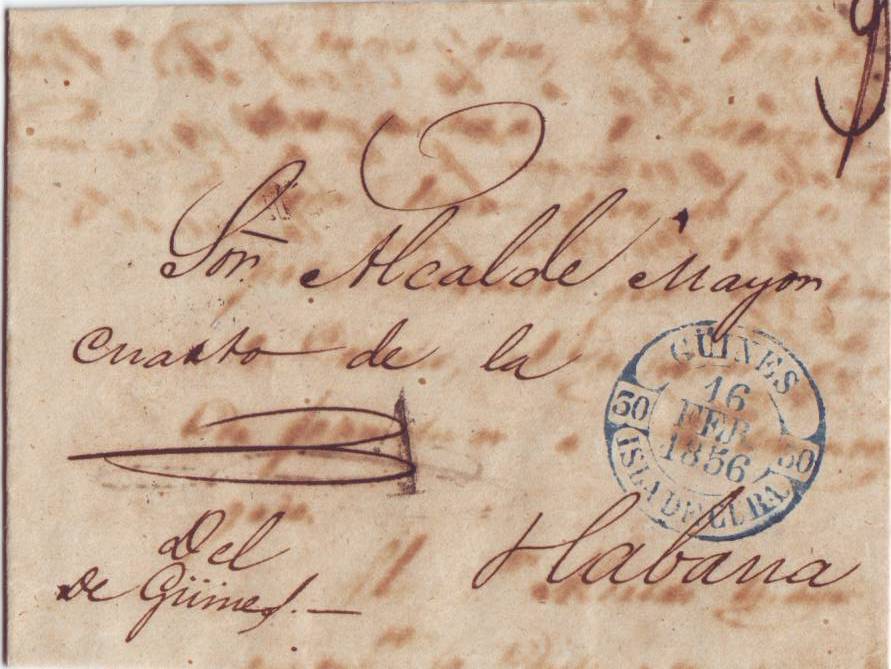 Sor. Alcalde Mayor
cuarto de la
GÜINES
16
FEB
1856
30
30
ISLA DE CUBA
Habana
Del
de Güines.—